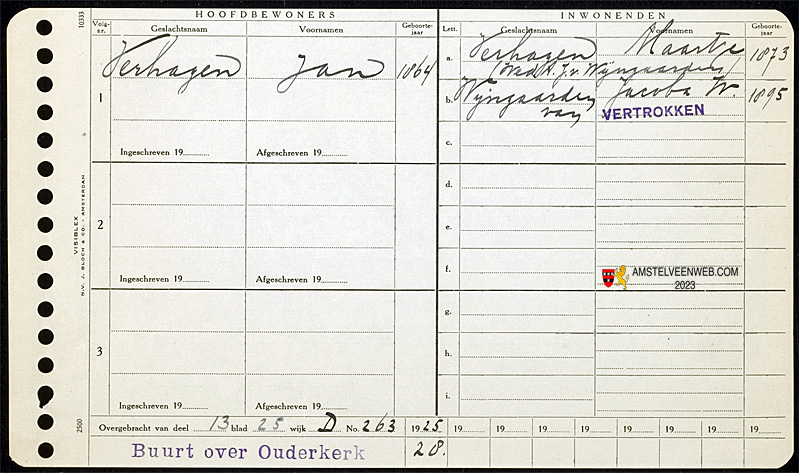 HOOFDBEWONERS INWONENDEN
Volg-nr. Geslachtsnaam Voornamen Geboorte-jaar Lett. Geslachtsnaam Voornamen Geboorte-jaar
1 Verhagen Jan 1864
a. Verhagen Maartje 1873
(Wed. A. J. v. Wijngaarden)
b. Wijngaarden van Jacoba W. 1895
VERTROKKEN
c.
Ingeschreven 19 Afgeschreven 19
d.
2
e.
f.
Ingeschreven 19 Afgeschreven 19
AMSTELVEENWEB.COM
2023
g.
3
h.
i.
Ingeschreven 19 Afgeschreven 19
Overgebracht van deel 13 blad 25 wijk D No. 263 1925 19 19 19 19 19 19 19 19
Buurt over Ouderkerk 28.
10333
VISIBLEX
N.V. J. BLOCH & CO. - AMSTERDAM
2500